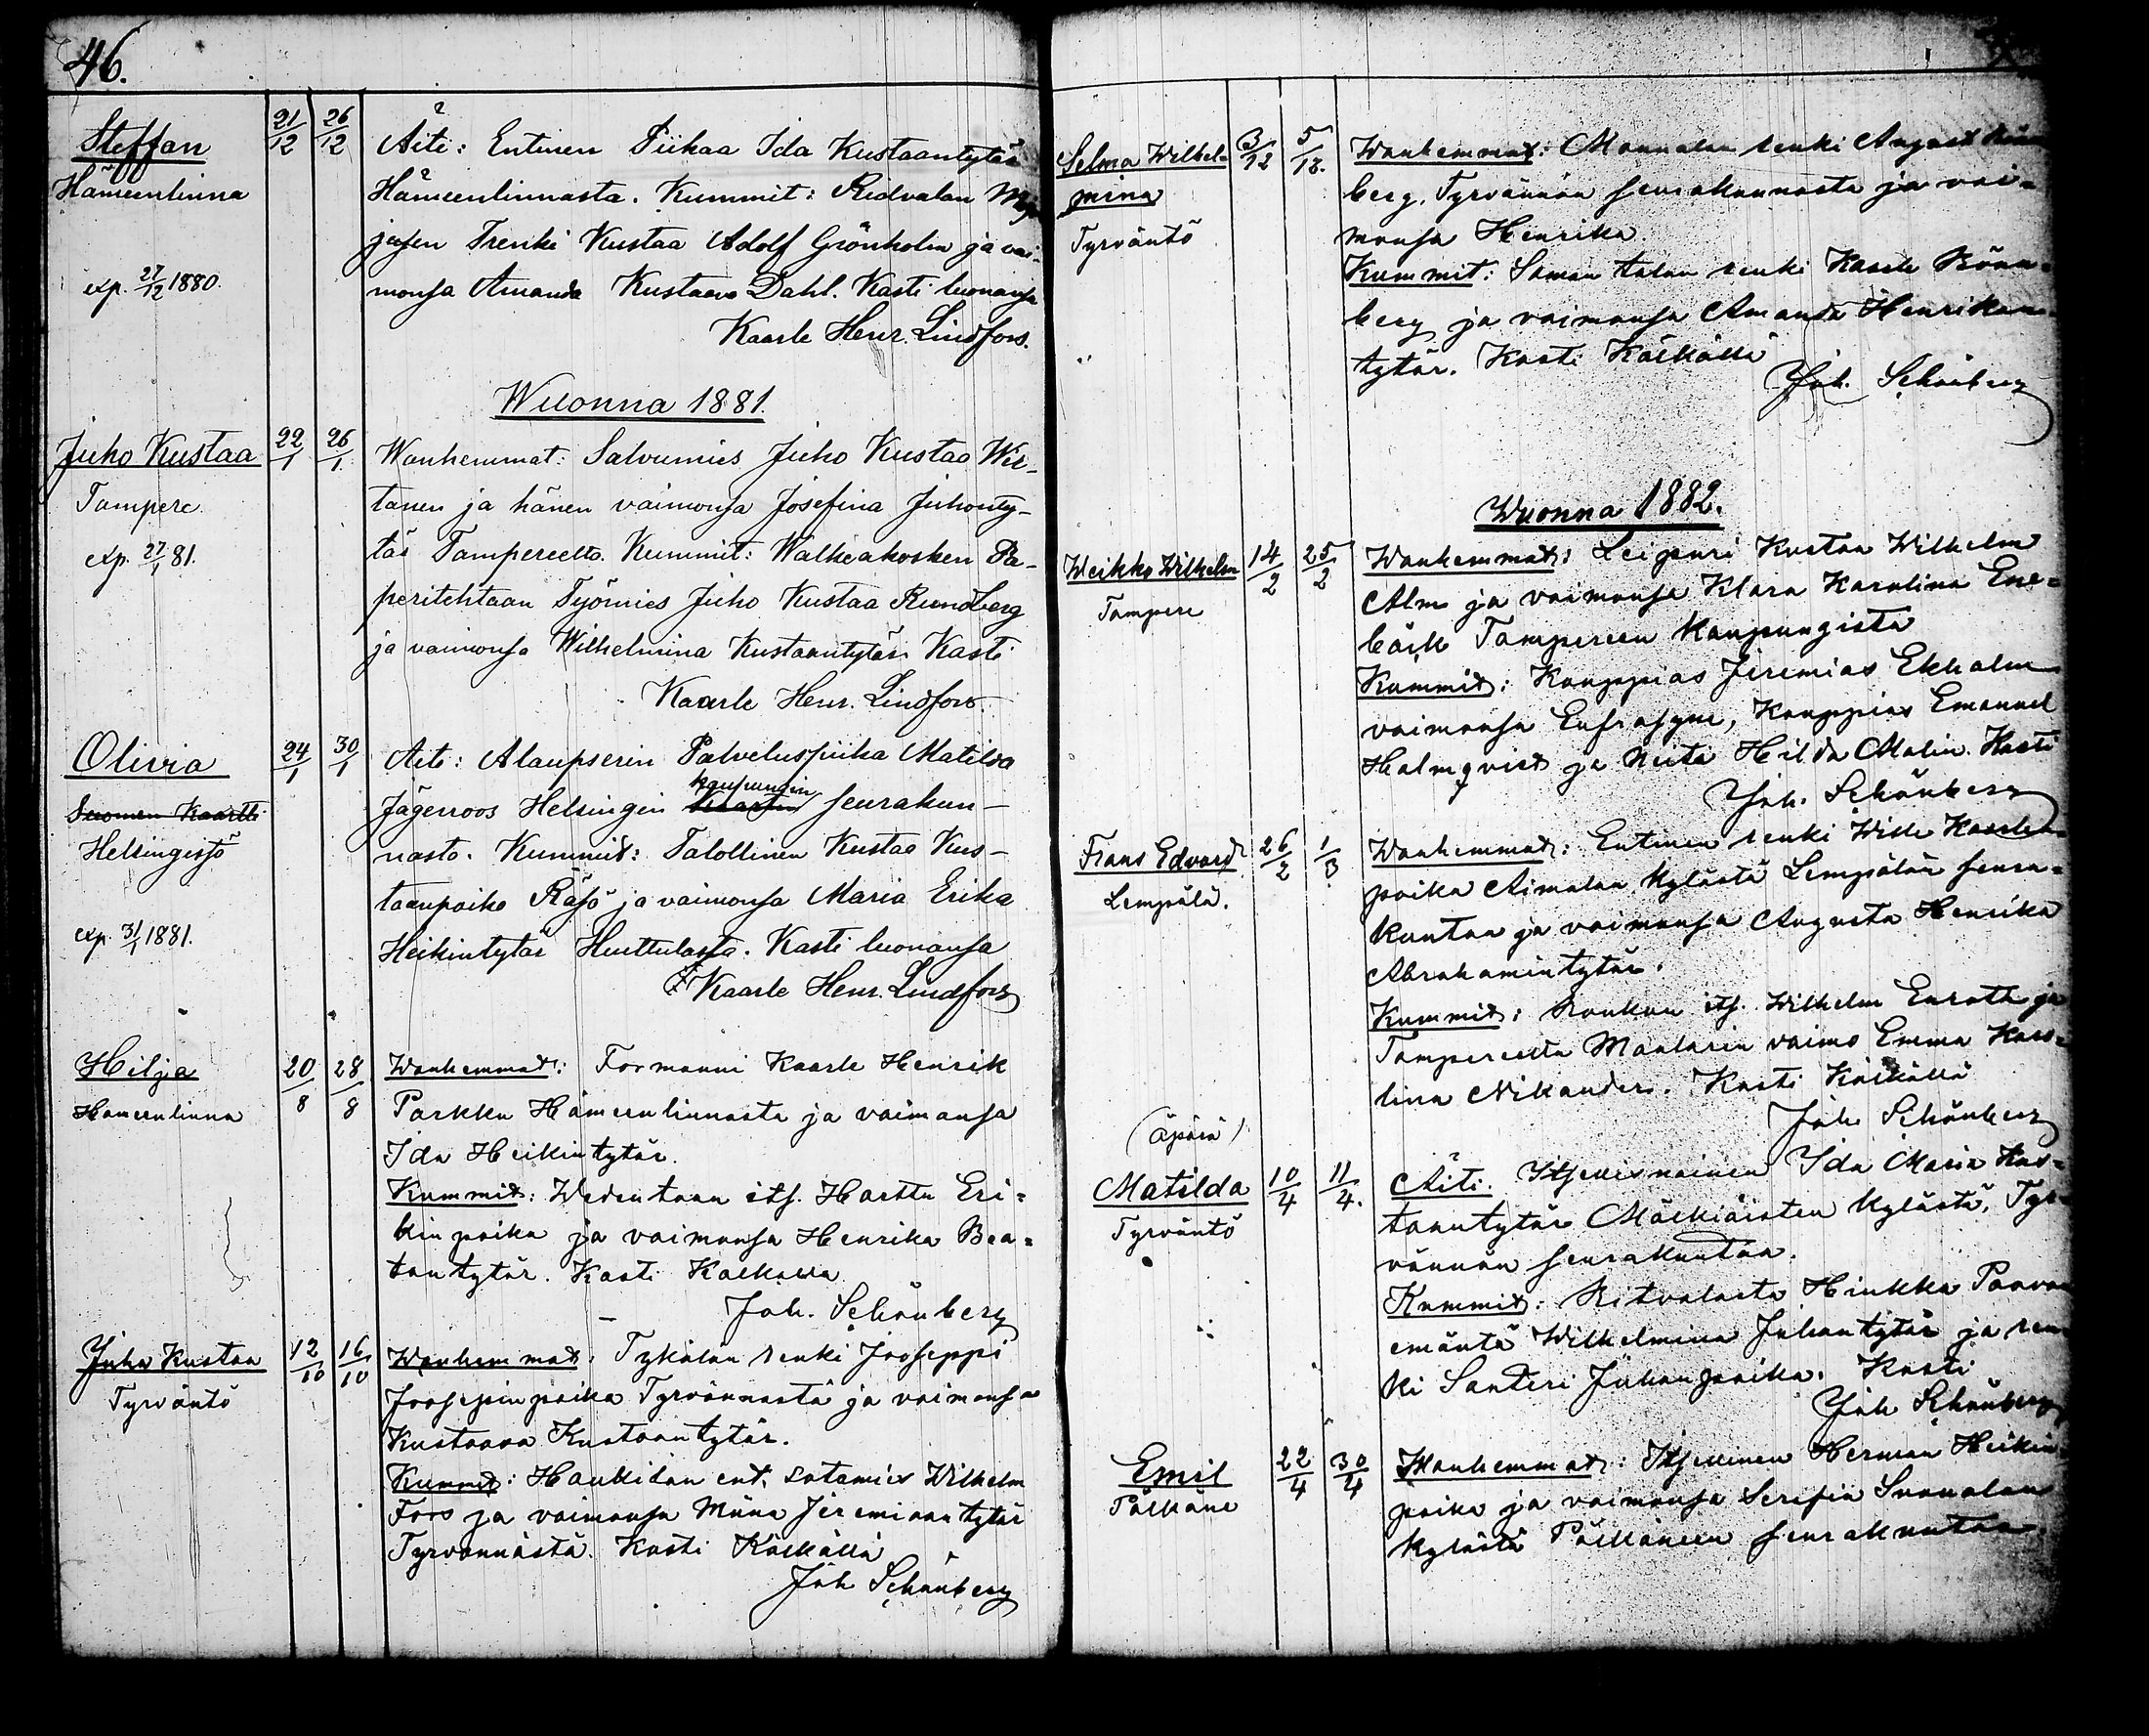 46.
Steffan
Hämeenlinna
exp. 27/12 1880.
21/12 26/12
Äiti: Entinen Piikaa Ida Kustaantytär
Hämeenlinnasta. Kummit: Ridvalan
jussen Trenki Kustaa Adolf Grönholm ja vai-
monsa Amanda Kustaava Dahl. Kasti luonansa
Kaarle Henr. Lindfors.
Wuonna 1881.
Juho Kustaa
Tampere
exp. 27/1 81.
22/1 26/1
Wanhemmat: Salvumies Juho Kustaa Wir-
tanen ja hänen vaimonsa Josefina Juhonty-
tär Tampereelta. Kummit: Walkeakosken Pa-
peritehtaan Työmies Juho Kustaa Rundberg
ja vaimonsa Wilhelmina Kustaantytär Kasti
Kaarle Henr. Lindfors.
Olivia
Suomen Kaarti
Helsingistö
exp. 31/1 1881.
24/1 30/1
Äiti: Alaupserin Palveluspiika Matilda
kaupungin
Jägerroos Helsingin Kaartin seurakun-
nasta. Kummit: Talollinen Kustaa Kus-
taanpoika Räsö ja vaimonsa Maria Erika
Heikintytär Huittulasta. Kasti luonansa
Kaarle Henr. Lindfors
Hilja
Hämeenlinna
20/8 28/8
Wanhemmat: Formanni Kaarle Henrik
Parkku Hämeenlinnasta ja vaimonsa
Ida Heikintytär.
Kummit: Wedentaan itf. Harttu Eri-
kinpoika ja vaimonsa Henrika Bea-
tantytär. Kasti Kaekaella
Joh. Schönberg
Juho Kustaa
Tyrväntö
12/10 16/10
Wanhemmat: Tykölän renki Jooseppi
Joosepinpoika Tyrvännöstä ja vaimonsa
Kustaava Kustaantytär.
Kummit: Haukilan ent. sotamies Wilhelm
Fors ja vaimonsa Miina Jeremiaantytär
Tyrvännöstä. Kasti Käekällä
Joh Schönberg
Selma Wilhel-
mina
Tyrväntö
3/12 5/12.
Wanhemmat: Mannalan renki August Rönn
berg, Tyrvännön seurakunnasta ja vai-
monsa Henrika
Kummit: Saman talon renki Kaarle Rönn-
berg ja vaimonsa Amanda Henrikan-
tytär. Kasti Käekällä
Joh. Schönberg
Wuonna 1882.
Weikko Wilhelm
Tampere
14/2 25/2
Wanhemmat: Leipuri Kustaa Wilhelm
Alm ja vaimonsa Klara Karolina Ene-
bäck Tampereen kaupungista
Kummit: Kauppias Jeremias Ekholm
vaimonsa Eufrosyne, Kauppias Emanuel
Holmqvist ja Neiti Hilda Malin. Kasti
Joh. Schönberg
Frans Edvard
Lempäälä.
26/2 1/3
Wanhemmat: Entinen renki Wille Kaarlen
poika Aimalan kylästä Lempälän seura-
kuntaa ja vaimonsa Augusta Henrika
Abrahamintytär.
Kummit: Roukon itf. Wilhelm Enroth ja
Tampereelta Maalarin vaimo Emma Karo-
lina Nikander. Kasti Käekällä
Joh. Schönberg
(Äpärä)
Matilda
Tyrväntö
10/4 11/4.
Äiti. Itsellisnainen Ida Maria Kus-
taantytär Mälkiäisten kylästä, Tyr-
vännön seurakuntaa.
Kummit: Ritvalasta Hinkka Paavon
emäntä Wilhelmina Juhantytär ja ren-
ki Santeri Juhanpoika. Kasti
Joh Schönberg
Emil
Pälkäne
22/4 30/4
Wanhemmat: Itsellinen Herman Heikin
poika ja vaimonsa Serafia
kylästä Pälkäneen seurakuntaa.